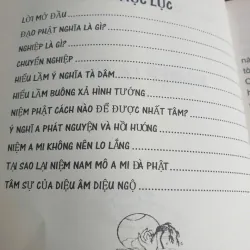 MỤC LỤC
LỜI MỞ ĐẦU
ĐẠO PHẬT NGHĨA LÀ GÌ?
NGHIỆP LÀ GÌ?
CHUYỂN NGHIỆP
HIỂU LẦM Ý NGHĨA TÀ DÂM
HIỂU LẦM BUÔNG XẢ HÌNH TƯỚNG
NIỆM PHẬT CÁCH NÀO ĐỂ ĐƯỢC NHẤT TÂM?
Ý NGHĨA PHÁT NGUYỆN VÀ HỒI HƯỚNG
NIỆM A MI KHÔNG NÊN LO LẮNG
TẠI SAO LẠI NIỆM NAM MÔ A MI ĐÀ PHẬT
TÂM SỰ CỦA DIỆU ÂM DIỆU NGỘ